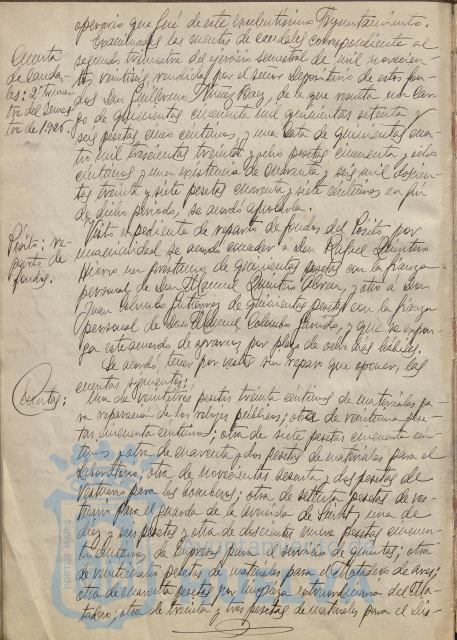 operario que fué de este excelentísimo Ayuntamiento.
Examinadas las cuentas de caudales correspondiente al
Cuenta
de Cauda-
les: 2º trimes-
tre del semes-
tre de 1926.
segundo trimestre del ejercicio semestral de mil novecien-
tos veintiseis, rendidas por el señor Depositario de estos fon-
dos Don Guillermo Muñoz , de la que resulta un car-
go de quinientas cincuenta mil quinientas setenta y
seis pesetas cinco céntimos, y una data de quinientas cua-
tro mil trescientas treinta y ocho pesetas cincuenta y ocho
céntimos y una existencia de cuarenta y seis mil doscien-
tas treinta y siete pesetas cuarenta y siete céntimos en fin
de dicho periodo, se acordó aprobarla.
Pósito: re-
parto de
fondos.
Visto expediente de reparto de fondos del Pósito, por
unanimidad se acordó conceder a Don Rafael Quintero
un préstamo de quinientas pesetas con la fianza
personal de Don Manuel Quintero , y otro a Don
Juan Gutiérrez de quinientas pesetas con la fianza
personal de Don Manuel , y que se expon-
ga este acuerdo de agravios, por plazo de ocho días hábiles.
Se acordó, tener por vistas sin reparo que oponer, las
cuentas siguientes:
Cuentas:
Una de veintitres pesetas treinta céntimos de materiales pa-
ra reparación de los relojes públicos; otra de veintiuna pese-
tas cincuenta céntimos; otra de siete pesetas cincuenta cén-
timos y otra de cuarenta y dos pesetas de materiales para el
Laboratorio; otra de novecientas sesenta y dos pesetas de
vestuario para los bomberos; otra de setenta pesetas de ves-
tuario para el guarda de la avenida de ; una de
diez y seis pesetas y otra de doscientas nueve pesetas cincuen-
ta céntimos, de impresos para el servicio de quintas; otra
de veinticuatro pesetas de materiales para el Matadero de aves;
otra de cuarenta pesetas por limpieza extraordinaria del Ma-
tadero; otra de treinta y tres pesetas de materiales para el